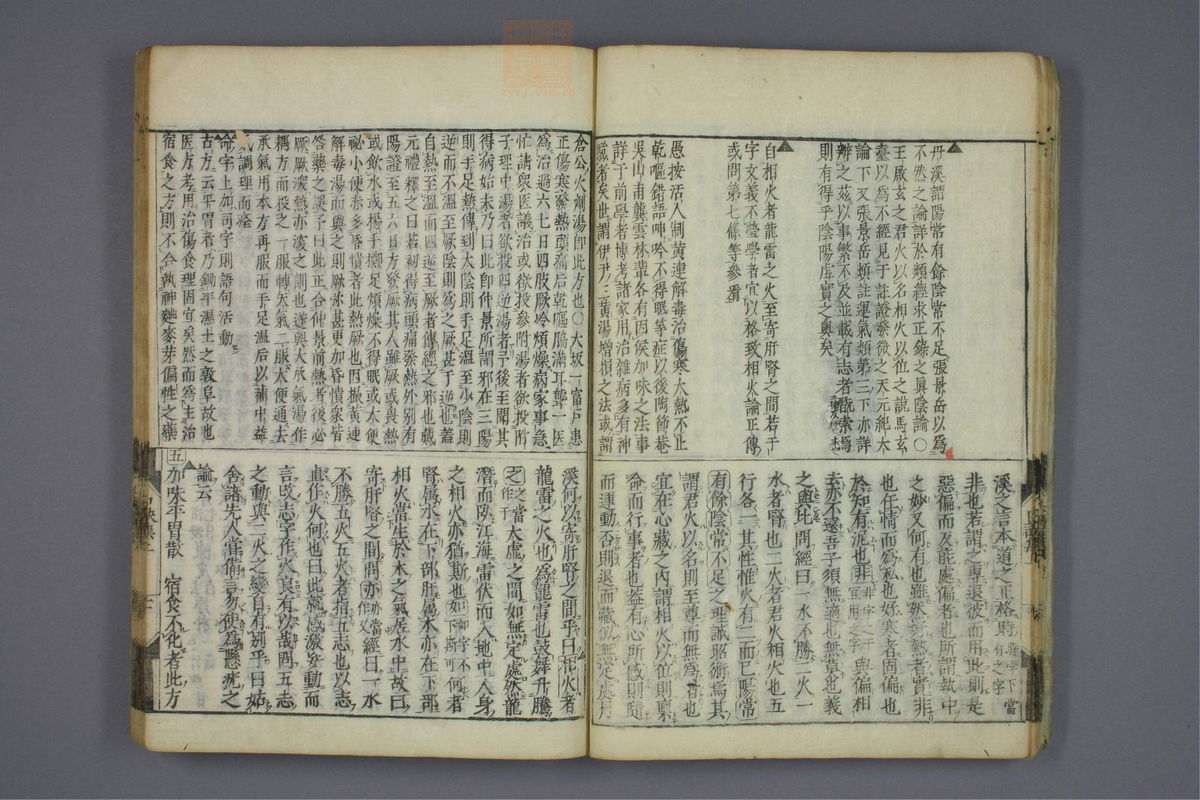 丹溪謂陽常有餘陰常不足張景岳以為
不然之論詳於類經求正錄之眞陰論〇
王啟玄之君火以名相火以位之說馬玄
臺以為不經見于註證發微之天元紀大
論下又張景岳類註運氣類第三下亦詳
辨之茲以事繁不及並載有志者
則有得乎陰陽虛實之奧矣
自相火者龍雷之火至寄肝腎之間若干
字文義不瑩學者宜以格致相火論正傳
或問第七條等參看
愚按活人制黄連解毒治傷寒大熱不止
乾嘔錯語呻吟不得眠等症以後陶節菴
吳山甫龔雲林輩各有因侯加味之法事
詳于前學者博考諸家用治雑病多有神
驗者矣世謂伊尹三黄湯增損之法或謂
溪之言本道之正格時
非也若謂之專退彼而用此則是
惡偏而反能處偏者也所謂執中
之妙又何有也雖然好熱者實非
也任情而為私也好寒者固偏也
於知有泥也非與偏相
去亦不遠吾子須無適也無莫也義
之與此問經曰一水不勝二火一
水者腎也二火者君火相火也五
行各一其性惟火有二而已陽常
有餘陰常不足之理誠昭術焉其
謂君火以名則至尊而無為者也
宜在心藏之內謂相火以位則稟
命而行事者也蓋有心所感則隨
而運動否則退而藏似無定處月
倉公火劑湯即此方也〇大坂一富戶患
正傷寒發熱頭痛后乾嘔脇滿耳聾一医
為治過六七日四肢厥冷煩燥病家事急
忙請衆医議治或欲投參附湯者欲投附
子理中湯者欲投四逆湯者予後至聞其
得病始末乃曰此即仲景所謂邪在三陽
則手足熱傳到太陰則手足溫至少陰則
逆而不溫至厥陰則為之厥甚于逆也蓋
自熱至溫而四逆至厥者傳經之邪也戴
元禮釋之曰若初得病頭痛發熱外別有
陽證至五六日方發厥其人雖厥或畏熱
或飲水或楊手擲足煩燥不得眠或大便
祕小便赤多昏憒者此熱厥也因振黄連
解毒湯而與之則厥弥甚更加昏憒衆皆
咎藥之誤予曰此正合仲景前熱者後必
厥厥深熱亦深之訓也遂與大承氣湯作
耦方而投之一服轉矢氣二服大便通去
承氣用本方再服而手足溫后以補中益
氣調理而痊
命字上加司字則語句活動
古方云平胃者乃鍘平濕土之敦阜故也
医方考用治傷食理固宜矣然而為主治
宿食之方則不合執神麯麥芽偏性之藥
溪何以寄肝腎之間乎曰相火者
龍雷之火也為龍雷也鼓舞升騰
之之當作于大虛之間如無定處於龍
潛而歸江海雷伏而入地中人身
之相火亦猶斯也如如字下斯可不何者
腎屬水在下部肝屬木亦在下部
相火當生於木之氣居水中故曰
寄肝腎之間問亦亦當作又經曰一水
不勝五火五火者指五志也以志
直作火何也曰此就感激妄動而
言改志字作火良有以哉問五志
之動與二火之變自有别乎曰姑
舍諸先人嘗備言易使為懸疣之
論云
五加味平胃散 宿食不化者此方